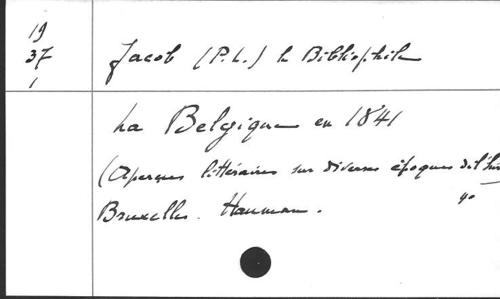 19
37
1
Jacob (P.L.) le Bibliophile
La Belgique en 1841
(Aperçus littéraires sur diverses époques de l'
Bruxelles. Hauman.